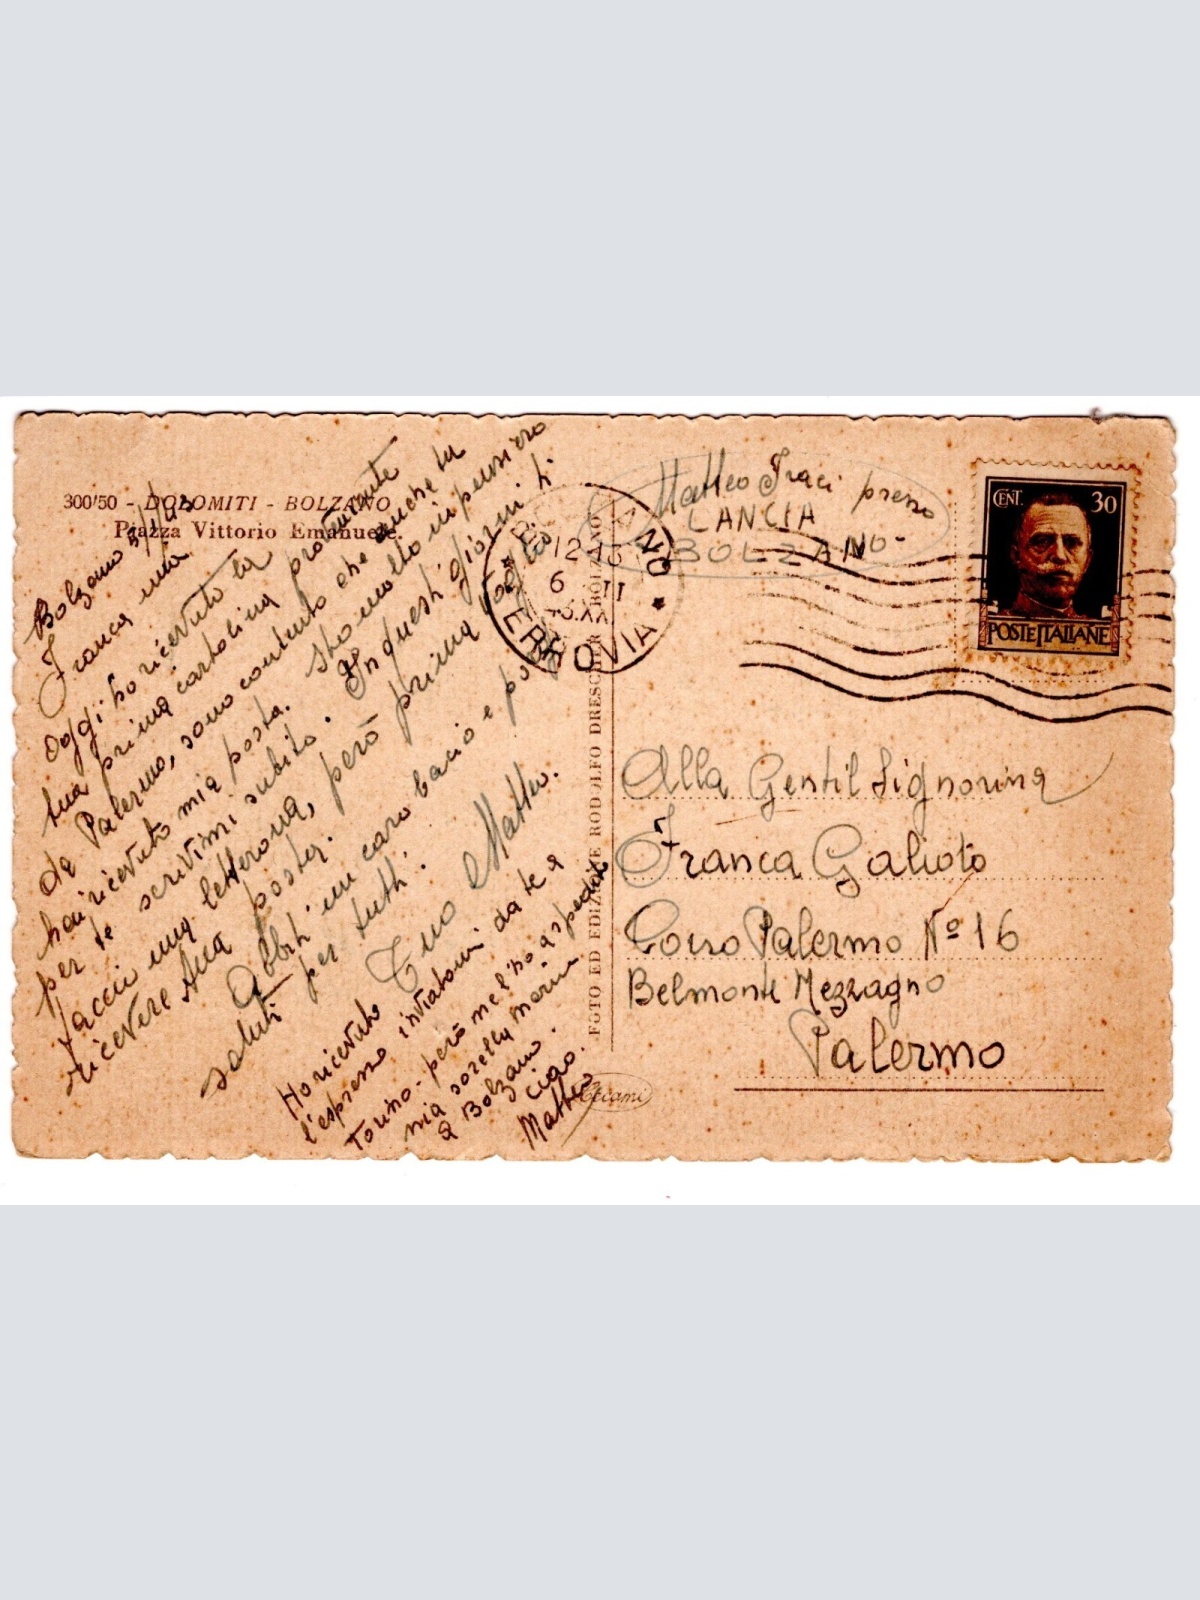 300/50 - DOLOMITI - BOLZANO
Piazza Vittorio Emanuele.
Bolzano
Franca mia
Oggi ho ricevuto la
tua prima cartolina proveniente
da Palermo, sono contento che anche tu
hai ricevuto mia posta. Sto molto in pensiero
per te scrivimi subito. In questi giorni ti
faccio una letterona, però prima voglio
ricevere tua posta.
Abbiti un caro bacio e
saluti per tutti.
Tuo Matteo.
Ho ricevuto
l'espresso inviatomi da te a
Torino - però me l'ha spedito
mia sorella
a Bolzano.
Ciao.
Matteo
FOTO ED EDIZIONE RODOLFO DRESCHER BOLZANO
Cecami
BOLZANO
12-13
6 II
FERROVIA
Matteo Traci presso
LANCIA
BOLZANO-
CENT. 30
POSTE ITALIANE
Alla Gentil Signorina
Franca Galioto
Corso Palermo Nº 16
Belmonte Mezzagno
Palermo